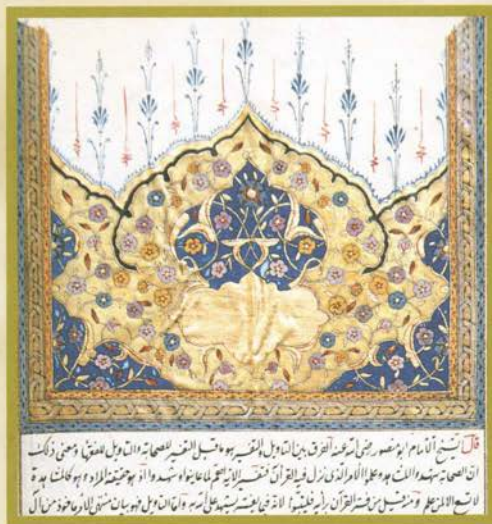 قال الشيخ الامام ابو منصور رضى الله عنه الفرق بين التاويل والتفسير هو ما قيل التفسير للصحابة والتاويل للفقهاء ومعنى ذلك
ان الصحابة شهدوا المشاهد وعلموا الامر الذى نزل فيه القرآن فتفسير الاية اهم لما عاينوا وشهدوا اذ هو حقيقة المراد وهو كالمشاهدة
لا تسمع الا ممن علم ومنه قيل من فسر القرآن برأيه فليتبوأ لانه فيما يفسر يشهد على الله به واما التاويل فهو بيان منتهى الامر مأخوذ من آل